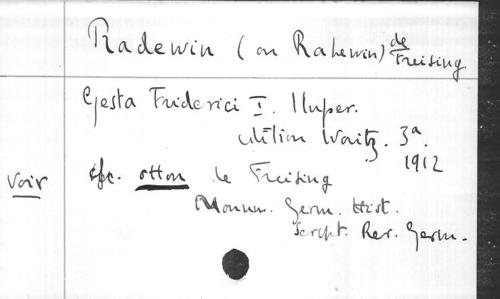 Radewin (ou Rahewin) de Freising
Gesta Friderici I. Imper.
édition Waitz. 3a.
1912
voir cfr. otton de Freising
Monum. Germ. Hist.
Script. Rer. Germ.